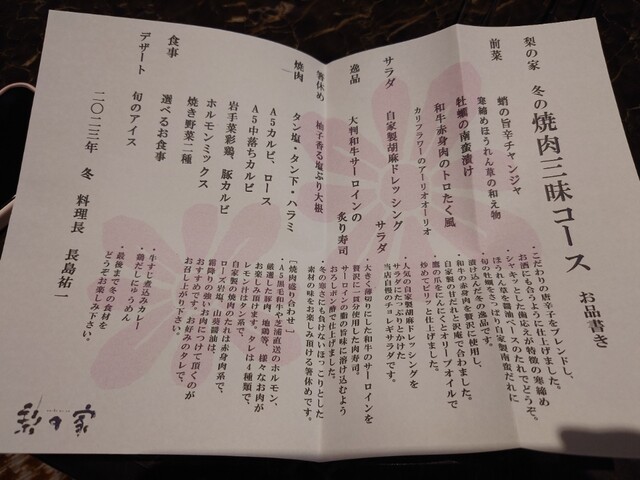 梨の家 冬の焼肉三昧コース お品書き
前菜 蛸の旨辛チャンジャ
・こだわりの唐辛子をブレンドし、
お酒にも合うように仕上げました。
寒締めほうれん草の和え物
・シャキッとした歯応えが特徴の寒締め
ほうれん草を醤油ベースのたれでどうぞ。
牡蠣の南蛮漬け
・旬の牡蠣をさっぱり自家製南蛮だれに
漬け込んだ冬の逸品です。
和牛赤身肉のトロたく風
・和牛の赤身肉を贅沢に使用し、
自家製の甘だれと沢庵で合わました。
カリフラワーのアーリオオーリオ
・鷹の爪をにんにくとオリーブオイルで
炒めてピリッと仕上げました。
サラダ 自家製胡麻ドレッシングサラダ
・人気の自家製胡麻ドレッシングを
サラダにたっぷりとかけた
当店自慢のチョレギサラダです。
逸品 大判和牛サーロインの炙り寿司
・大きく薄切りにした和牛のサーロインを
贅沢に一貫分使用した肉寿司。
サーロインの脂の旨味に溶け込むよう
おろしポン酢で仕上げました。
箸休め 柚子香る塩ぶり大根
・冬の寒さにも負けないほっこりとした
素材の味をお楽しみ頂ける箸休めです。
焼肉 タン塩・タンド・ハラミ
A5カルビ、ロース
A5中落ちカルビ
岩手菜彩鶏、豚カルビ
ホルモンミックス
焼き野菜二種
[焼肉盛り合わせ]
・A5黒毛和牛や芝浦直送のホルモン、
厳選した豚肉、地鶏等、様々なお肉が
お楽しみ頂けます。タレは4種類で、
レモン汁はタン系で、
自家製の焼肉のたれは赤身肉系で、
ローズ岩塩、山葵醤油は、
霜降の強いお肉につけて頂くのが
おすすめです。お好みのタレで、
お召し上がり下さい。
食事 選べるお食事
・牛すじ煮込みカレー
・鶏だしにゅうめん
デザート 旬のアイス
・最後まで冬の食材を
どうぞお楽しみ下さい。
二〇二三年 冬 料理長 長島祐一